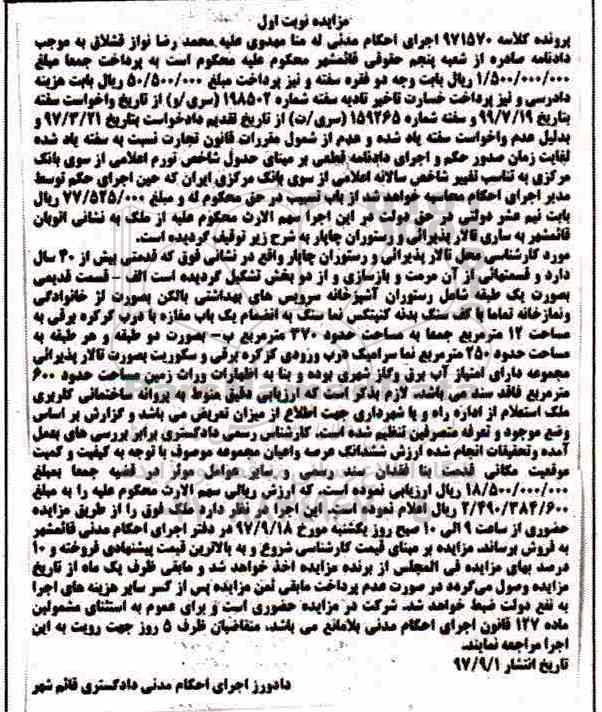 مزایده نوبت اول
پرونده کلاسه ۹۷۱۵۷۰ اجرای احکام مدنی له منا مهدوی علیه محمد رضا نواز قشلاق به موجب
دادنامه صادره از شعبه پنجم حقوقی قائمشهر محکوم علیه محکوم است به پرداخت جمعا مبلغ
۱/۵۰۰/۰۰۰/۰۰۰ ریال بابت وجه دو فقره سفته و نیز پرداخت مبلغ ۵۰/۵۰۰/۰۰۰ ریال بابت هزینه
دادرسی و نیز پرداخت خسارت تاخیر تادیه سفته شماره ۱۹۸۵۰۲ (سری/و) از تاریخ واخواست سفته
بتاریخ ۹۹/۷/۱۹ و سفته شماره ۱۵۹۲۶۵ (سری/ت) از تاریخ تقدیم دادخواست بتاریخ ۹۷/۳/۲۱ و
بدلیل عدم واخواست سفته یاد شده و عدم از شمول مقررات قانون تجارت نسبت به سفته یاد شده
لغایت زمان صدور حکم و اجرای دادنامه قطعی بر مبنای جدول شاخص تورم اعلامی از سوی بانک
مرکزی به تناسب تغییر شاخص سالانه اعلامی از سوی بانک مرکزی ایران که حین اجرای حکم توسط
مدیر اجرای احکام محاسبه خواهد شد از باب تسبیب در حق محکوم له و مبلغ ۷۷/۵۲۵/۰۰۰ ریال
بابت نیم عشر دولتی در حق دولت در این اجرا سهم الارث محکوم علیه از ملک به نشانی اتوبان
قائمشهر به ساری تالار پذیرائی و رستوران چاپار به شرح زیر توقیف گردیده است.
مورد کارشناسی محل تالار پذیرائی و رستوران چاپار واقع در نشانی فوق که قدمتی بیش از ۴۰ سال
دارد و قسمتهائی از آن مرمت و بازسازی و از دو بخش تشکیل گردیده است الف - قسمت قدیمی
بصورت یک طبقه شامل رستوران آشپزخانه سرویس های بهداشتی بالکن بصورت لژ خانوادگی
ونمازخانه تماما با کف سنگ بدنه گنیتکس نما سنگ به انضمام یک باب مغازه با درب کرکره برقی به
مساحت ۱۲ مترمربع جمعا به مساحت حدود ۳۷۰ مترمربع ب- بصورت دو طبقه و هر طبقه به
مساحت حدود ۲۵۰ مترمربع نما سرامیک درب ورودی کرکره برقی و سکوریت بصورت تالار پذیرائی
مجموعه دارای امتیاز آب برق وگاز شهری بوده و بنا به اظهارات وراث زمین مساحت حدود ۶۰۰
مترمربع فاقد سند می باشد. لازم بذکر است که ارزیابی دقیق منوط به پروانه ساختمانی کاربری
ملک استعلام از اداره راه و یا شهرداری جهت اطلاع از میزان تعریض می باشد و گزارش بر اساس
وضع موجود و تعرفه متصرفین تنظیم شده است. کارشناس رسمی دادگستری برابر بررسی های بعمل
آمده وتحقیقات انجام شده ارزش ششدانگ عرصه واعیان مجموعه موصوف با توجه به کیفیت و کمیت
موقعیت مکانی قدمت بنا فقدان سند رسمی و سایر عوامل موثر در قضیه جمعا بمبلغ
۱۸/۵۰۰/۰۰۰/۰۰۰ ریال ارزیابی نموده است. که ارزش ریالی سهم الارث محکوم علیه را به مبلغ
۲/۴۹۰/۳۸۴/۶۰۰ ریال اعلام نموده است. این اجرا در نظر دارد ملک فوق را از طریق مزایده
حضوری از ساعت ۹ الی ۱۰ صبح روز یکشنبه مورخ ۹۷/۹/۱۸ در دفتر اجرای احکام مدنی قائمشهر
به فروش برساند. مزایده بر مبنای قیمت کارشناسی شروع و به بالاترین قیمت پیشنهادی فروخته و ۱۰
درصد بهای مزایده فی المجلس از برنده مزایده اخذ خواهد شد و مابقی ظرف یک ماه از تاریخ
مزایده وصول می‌گردد در صورت عدم پرداخت مابقی ثمن مزایده پس از کسر سایر هزینه های اجرا
به نفع دولت ضبط خواهد شد. شرکت در مزایده حضوری است و برای عموم به استثنای مشمولین
ماده ۱۲۷ قانون اجرای احکام مدنی بلامانع می باشد. متقاضیان ظرف ۵ روز جهت رویت به این
اجرا مراجعه نمایند.
تاریخ انتشار ۹۷/۹/۱
دادورز اجرای احکام مدنی دادگستری قائم شهر